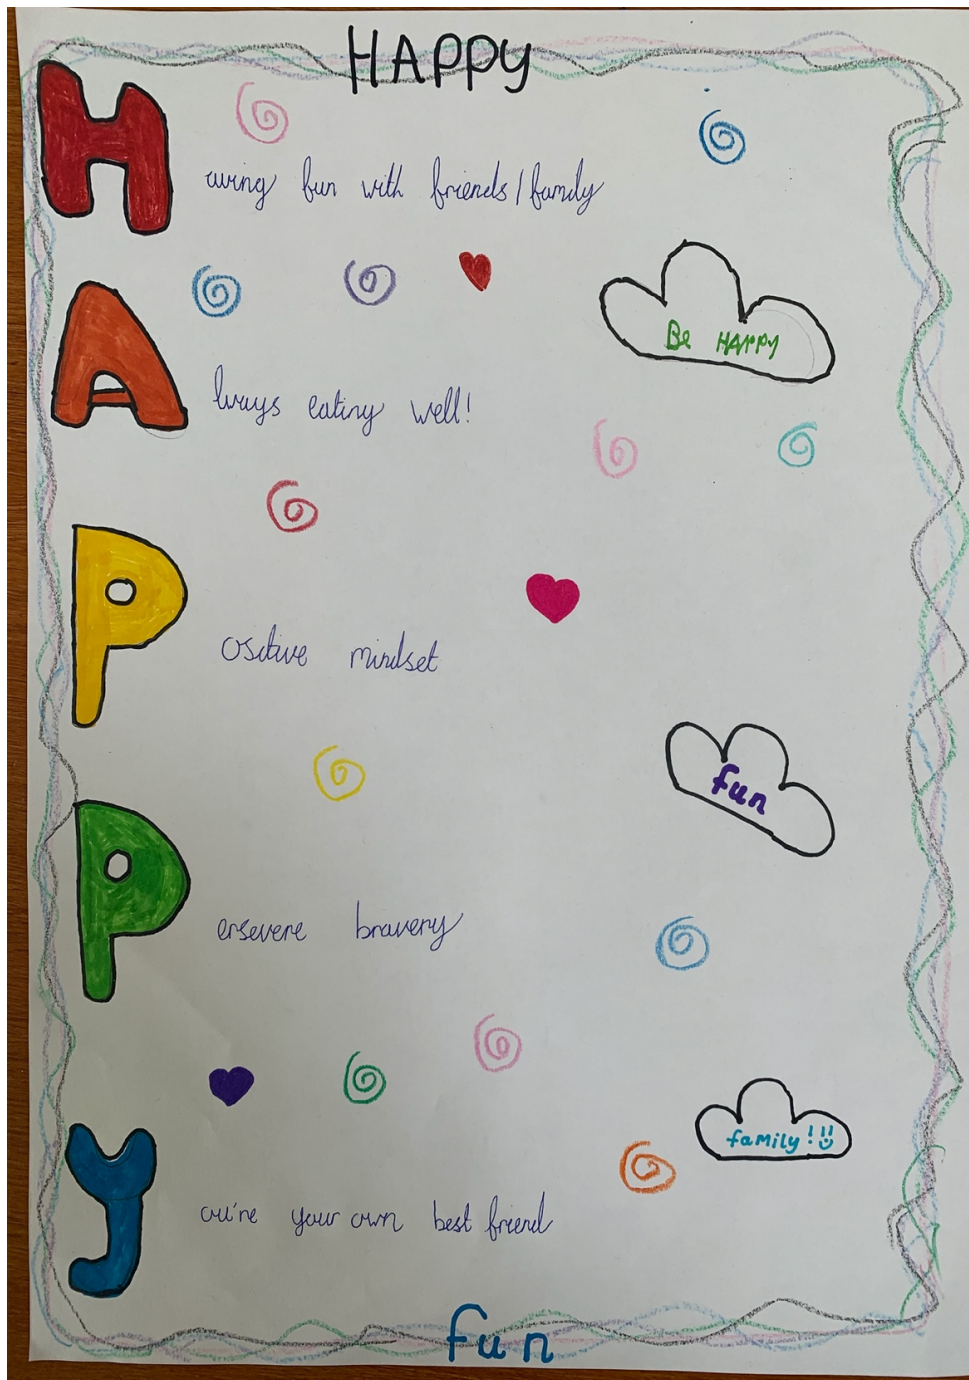 HAPPY
Having fun with friends/family
Be HAPPY
Always eating well!
Positive mindset
fun
Persevere bravery
family!!!
You're your own best friend
fun